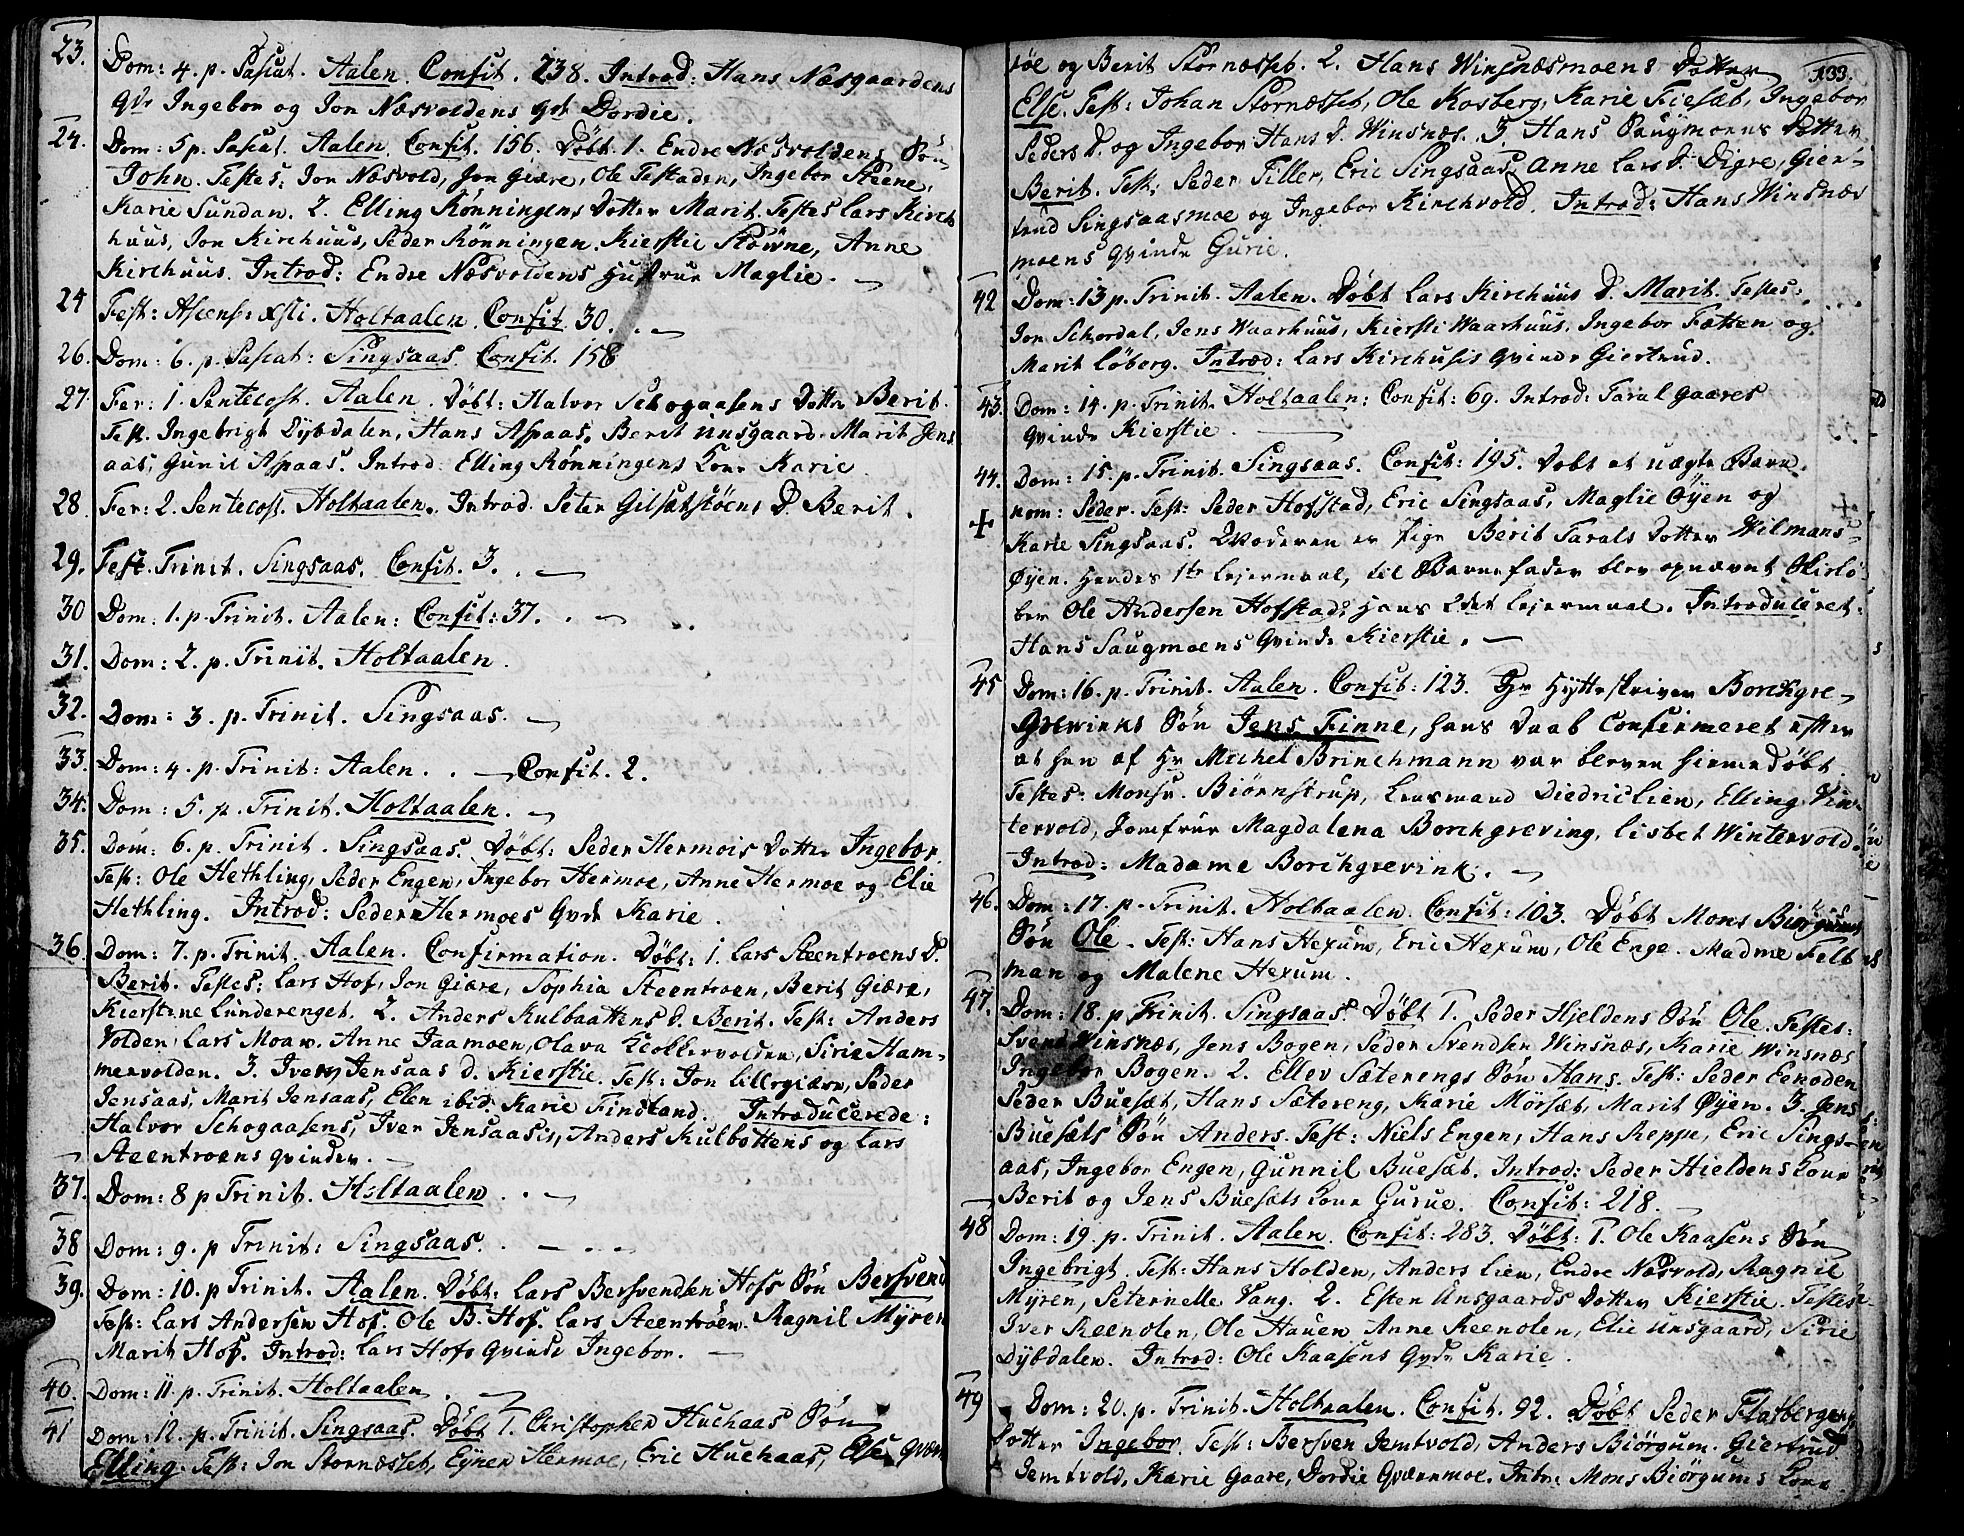 23. Dom: 4. p. Pascat. Aalen. Confit. 238. Introd: Hans Næsgaardens
Qvr Ingebor og Jon Næsvoldens qvt Dordie.
24. Dom: 5 p. Pascat. Aalen. Confit. 156. Døbt 1. Endre Næsvoldens Søn
John. Testes: Jon Næsvold, Jon Giære, Ole Testaden, Ingebor Steene,
Karie Sundan. 2. Elling Rönningens Dotter Marit. Testes Lars Kirch
huus, Jon Kirchuus, Peder Rönningen. Kierstie Stövne, Anne
Kirchuus. Introd: Endre Næsvoldens Hustrue Maglie.
24 Fest: Ascens: Xsti. Holtaalen. Confit. 30.
26. Dom: 6. p. Pascat: Singsaas. Confit. 158
27. Fer: 1. Pentecost. Aalen. Döbt: Halvor Schogaasens Dotter Berit.
Test. Ingebrigt Dybdalen, Hans Aspaas, Berit Unsgaard. Marit Jens
aas, Gunil Aspaas. Introd: Elling Rönningens Kone Karie.
28. Fer: 2. Pentecost. Holtaalen. Introd. Peter Gilsetstöens D. Berit.
29. Fest. Trinit. Singsaas. Confit. 3.
30 Dom. 1. p. Trinit. Aalen: Confit: 37.
31. Dom: 2. p. Trinit. Holtaalen.
32. Dom: 3. p. Trinit. Singsaas.
33. Dom: 4. p. Trinit: Aalen. Confit. 2.
34. Dom: 5. p. Trinit. Holtaalen.
35. Dom: 6. p. Trinit. Singsaas. Døbt: Peder Hermois Dotter Ingebor.
Test: Ole Hethling, Peder Engen, Ingebor Hermoe, Anne Hermoe og Elie
Hethling. Introd: Peder Hermoes Qvde Karie.
36. Dom: 7. p. Trinit. Aalen. Confirmation. Døbt: 1. Lars Steentroens D.
Berit. Testes: Lars Hof, Jon Giære, Sophia Steentroen, Berit Giære,
Kierstine Lunderenget. 2. Anders Kulbaattens d. Berit. Test: Anders
Volden, Lars Moan. Anne Taamoen, Olava Klokkervolden, Sirie Ham-
mervolden. 3. Ivers Jensaas d. Kierstie. Test: Jon Lillegiære, Peder
Jensaas, Marit Jensaas, Elen ibid. Karie Findland. Introducerede:
Halvor Schogaasens, Iver Jensaasis, Anders Kulbottens og Lars
Steentroens qvinder.
37. Dom: 8 p Trinit. Holtaalen.
38 Dom: 9. p Trinit: Singsaas.
39. Dom: 10. p Trinit. Aalen. Døbt: Lars Bersvendsen Hofs Søn Bersvend
Test: Lars Andersen Hof. Ole B. Hof. Lars Steentröen. Ragnil Myren
Marit Hof. Introd: Lars Hofs Qvinde Ingebor.
40. Dom: 11. p. Trinit. Holtaalen.
41 Dom: 12. p. Trinit. Singsaas. Døbt 1. Christopher Huehaas Søn
Elling. Test: Jon Stornæsset, Eyner Hermoe, Eric Huehaas, Else Qvæn
133.
röe og Berit Stornæsseb. 2. Hans Winsnæsmoens Dotter
Else. Test: Johan Stornæsset, Ole Kosberg, Karie Fieset, Ingebor
Peders D. og Ingebor Hans D. Winsnæs. 3. Hans Saugmoens Dotter
Berit. Test: Peder Tiller, Eric Singsaas, Anne Lars D. Digre, Gier-
trud Singsaasmoe og Ingebor Kirchvold. Introd: Hans Winsnæs
moens Qvinde Gurie.
42 Dom: 13 p. Trinit. Aalen. Døbt Lars Kirchuus D. Marit. Testes:
Jon Schordal, Jens Waarhuus, Kiersti Waarhuus, Ingebor Fætten og
Marit Löberg. Introd: Lars Kirchusis Qvinde Giertrud.
43. Dom: 14. p. Trinit. Holtaalen: Confit: 69. Introd: Taral Gaares
Qvinde Kierstie.
44. Dom: 15. p. Trinit. Singsaas. Confit: 195. Døbt et uægte Barn
nom: Peder. Test: Peder Hofstad, Eric Singsaas, Maglie Öyen og
Karie Singsaas. Moderen er Pige Berit Tarals Dotter Wilmans-
Öyen. Hendes 1te Leiermaal, til Barnefader blev opnævnt Skielö-
ber Ole Andersen Hofstad, hans 2det Leiermaal. Introduceret:
Hans Saugmoens Qvinde Kierstie.
45 Dom: 16. p. Trinit. Aalen. Confit: 123. Hr Hytteskriver Borchgre-
grevinks Søn Jens Finne, hans Daab Confirmeret efter
at han af Hr Michel Brinchmann var bleven hiemedöbt.
Testes: Monsr. Biörnstrup, Lensmand Diedriclien, Elling Vin-
tervold, Jomfrue Magdalena Borchgreving, Lisbet Wintervold.
Introd: Madame Borchgrevink.
46. Dom: 17. p. Trinit. Holtaalen. Confit: 103. Døbt Mons Biörgums
Søn Ole. Test: Hans Hexum, Eric Hexum, Ole Enge. Madme Felt
man og Malene Hexum.
47. Dom: 18. p Trinit. Singsaas. Døbt 1. Peder Hjeldens Søn Ole. Testes:
Svend Winsnæs, Jens Bogen, Peder Svendsen Winsnæs, Karie Winsnæs
Ingebor Bogen. 2. Ellev Sæterengs Søn Hans. Test: Peder Eenoden
Peder Buesæt, Hans Sætereng, Karie Mörsæt, Marit Øyen. 3. Jens
Buesæts Søn Anders. Test: Niels Engen, Hans Reppe, Eric Sings-
aas, Ingebor Engen, Gunnil Buesæt. Introd: Peder Hieldens Kone
Berit og Jens Buesæts Kone Gurue. Confit: 218.
48 Dom: 19. p. Trinit. Aalen. Confit: 283. Døbt: 1. Ole Kaasens Søn
Ingebrigt. Test: Hans Holden, Anders Lien, Endre Næsvold, Ragnil
Myren, Peternelle Vang. 2. Esten Unsgaards Dotter Kierstie. Testes:
Iver Reenolen, Ole Hauen Anne Reenolen, Elie Unsgaard, Sirie
Dybdalen. Introd: Ole Kaasens Qvde Karie.
49 Dom: 20. p. Trinit. Holtaalen. Confit. 92. Døbt Peder Flatbergens
Dotter Ingebor. Test: Bersven Jemtvold, Anders Biörgum. Giertrud
Jemtvold, Karie Gaare, Dordie Qværnmoe. Intr: Mons Biörgums Kone